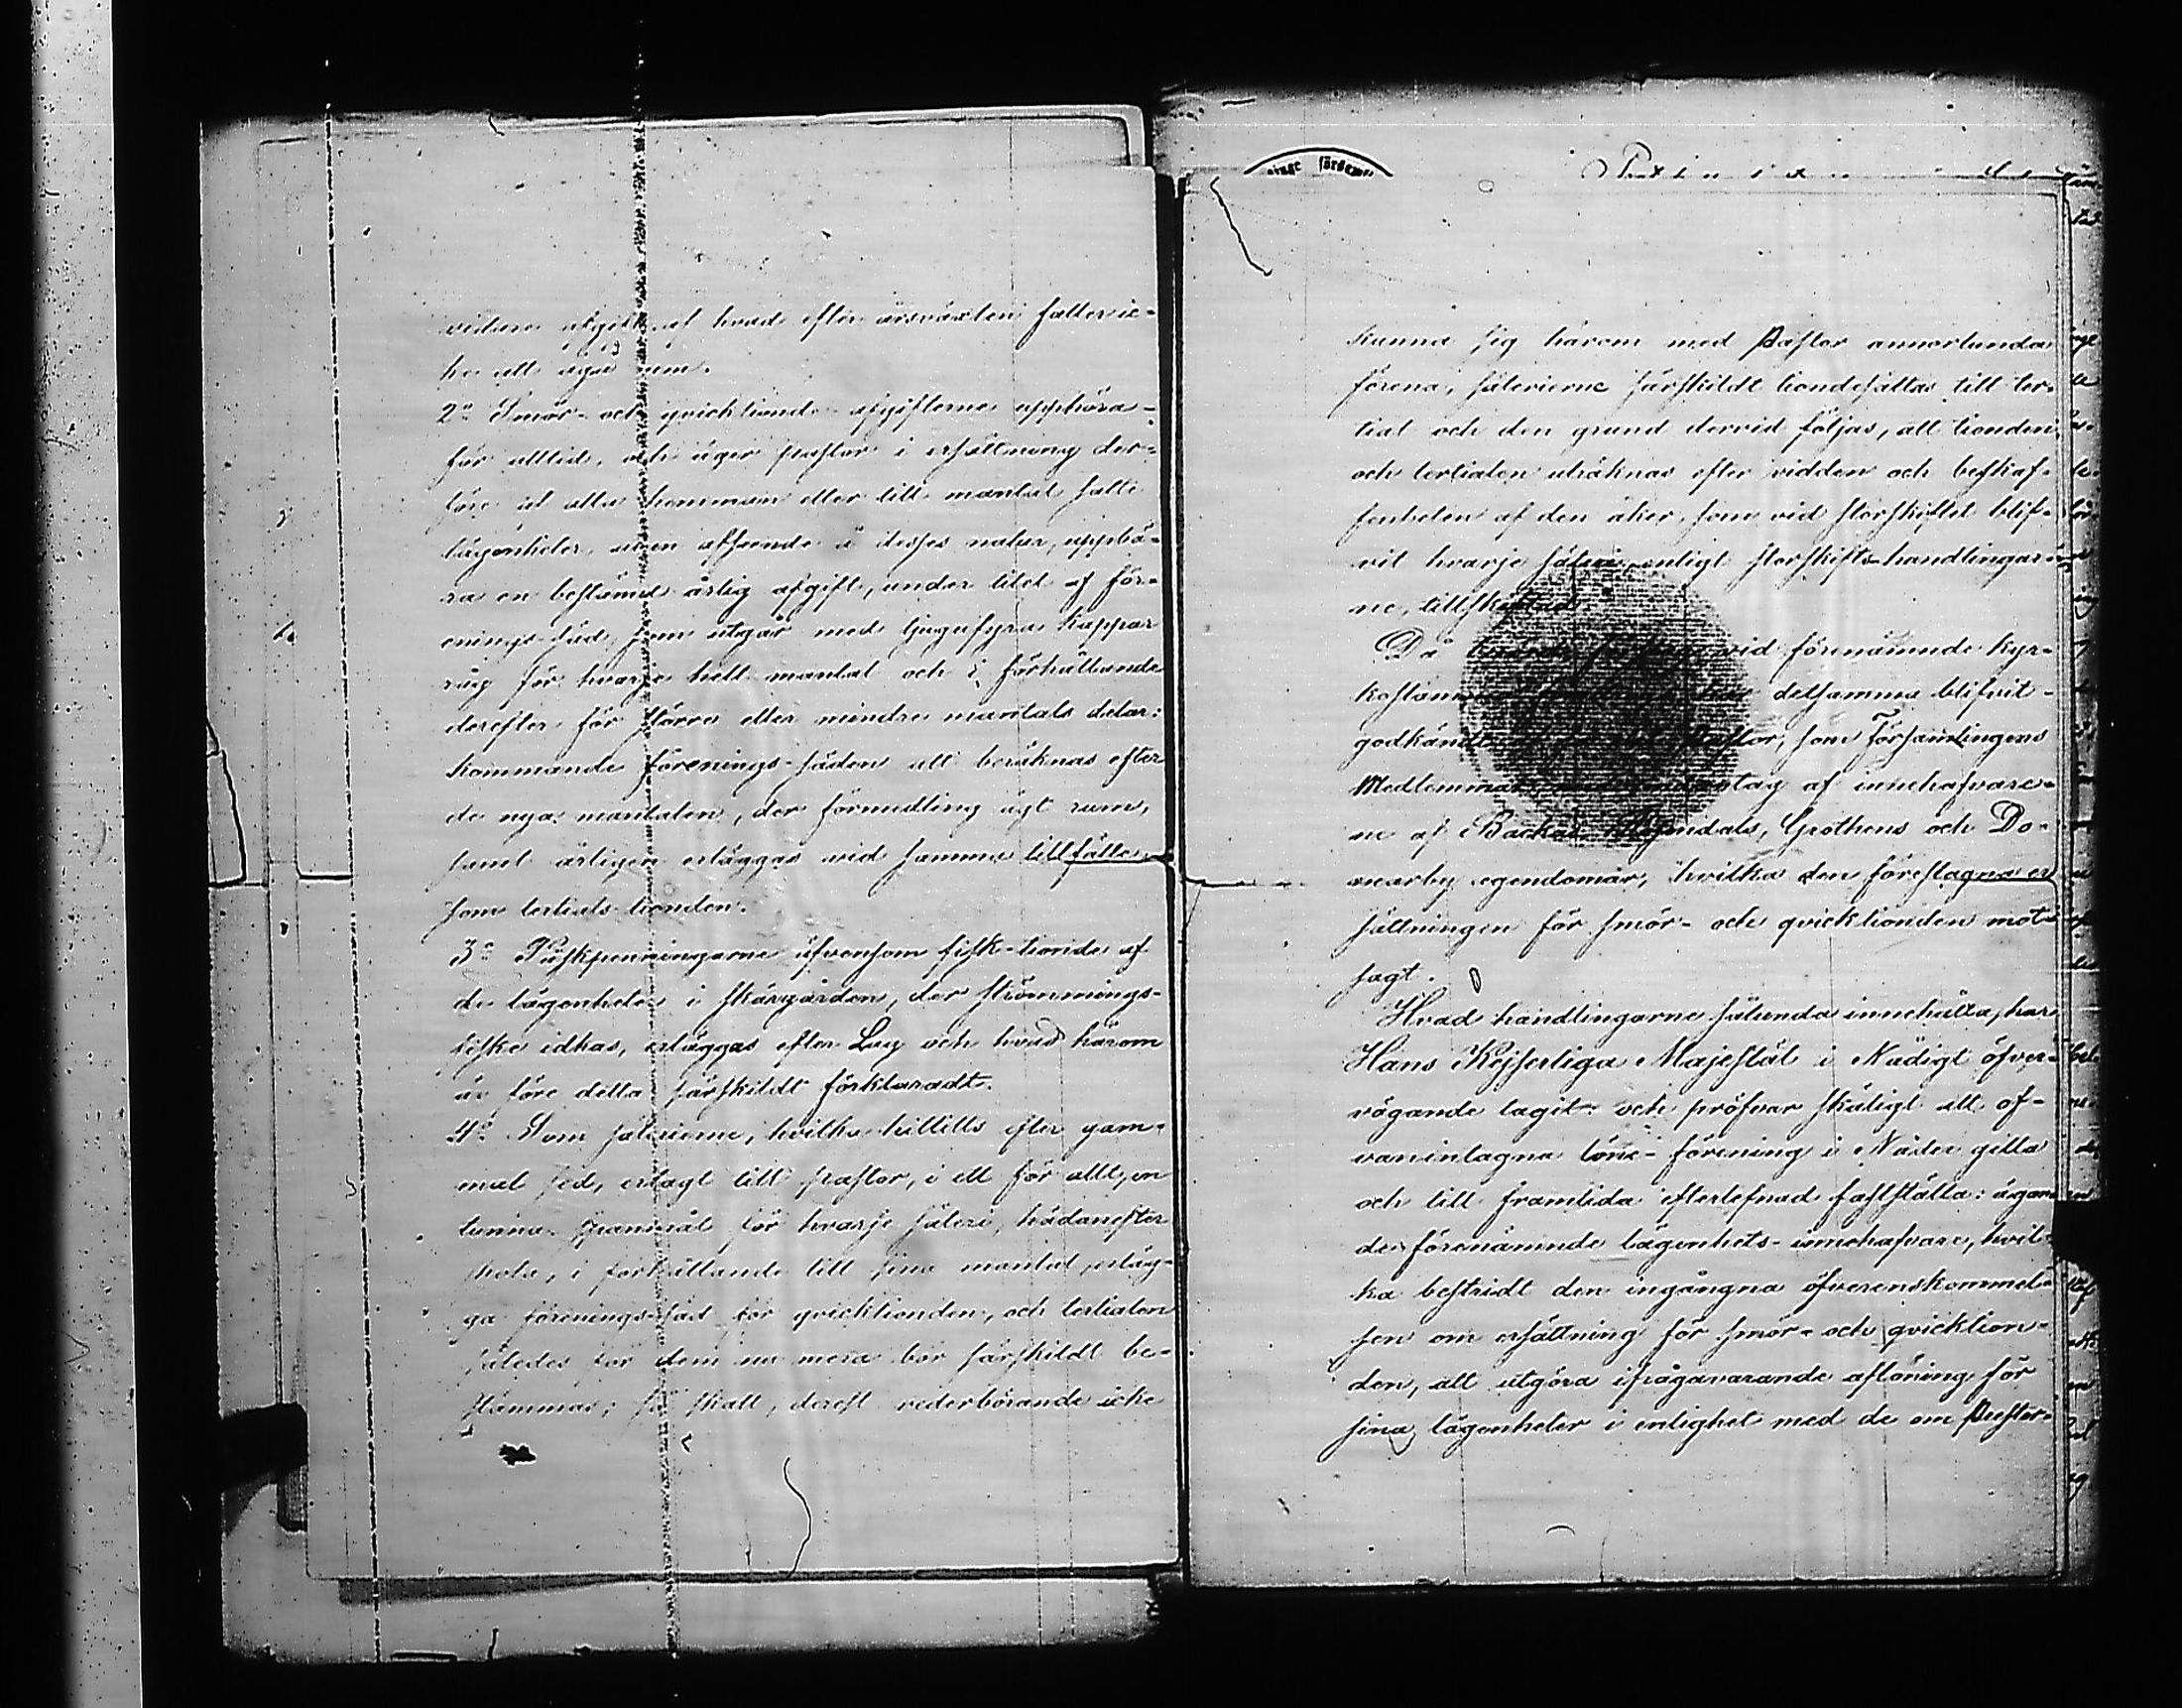 vidare afgift af hvad efter årsväxten faller ic-
ke att äga rum.
2:o Smör- och qvicktionde-afgifterne upphöra
för alltid, och äger pastor i ersättning der-
före af alla hemman eller till mantal satte
lägenheter, utan afseende å desses natur, uppbä-
ra en bestämd årlig afgift, under titel af för-
enings-säd, som utgår med tjugufyra kappar
råg för hvarje helt mantal och i förhållande
derefter för större eller mindre mantals delar:
kommande förenings-säden att beräknas efter
de nya mantalen, der förmedling ägt rum,
samt årligen erläggas vid samma tillfälle
som tertials tionden.
3:o Påskpenningarne äfvensom fisk-tionde af
de lägenheter i skärgården, der strömmings-
fiske idkas, erläggas efter Lag och hvad härom
är före detta särskildt förklaradt.
4:o Som säterierne, hvilka hittills efter gam-
mal sed, erlagt till pastor, i ett för allt, en
tunna spanmål för hvarje säteri, hädanefter
skola, i förhållande till sina mantal, erläg-
ga förenings-säd för qvicktionden, och tertialen
således för dem nu mera bör särskildt be-
stämmas; så skall, derest vederbörande icke
kunna sig härom med Pastor annorlunda
förena, säterierne särskildt tiondesättas till ter-
tial och den grund dervid följas, att tionden
och tertialen uträknas efter vidden och beskaf-
fenheten af den åker, som vid storskiftet blif-
vit hvarje säteri enligt storskifts-handlingar-
ne, tillskiftad.
Då vid förenämnde kyr-
kostämma detsamma blifvit
godkändt Pastor, som Församlingens
Medlemmar undantag af innehafvare-
ne af Backas, Rosendals, Grothens och Do-
marby egendomar, hvilka den föreslagna er-
sättningen för smör- och qvicktionden mot-
sagt.
Hvad handlingarne sålunda innehålla, har
Hans Kejserliga Majestät i Nådigt öfver-
vägande tagit och pröfvar skäligt att of-
vanintagna löne-förening i Nåder gilla
och till framtida efterlefnad fastställa: ägan-
de förenämnde lägenhets-innehafvare, hvil-
ka bestridt den ingångna öfverenskommel-
sen om ersättning för smör- och qvicktion-
den, att utgöra ifrågavarande aflöning för
sina lägenheter i enlighet med de om Prester-